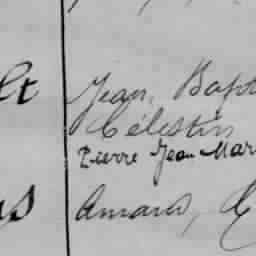 lt Jean, Bapt
Célestin
Pierre Jean Mar
Amans,